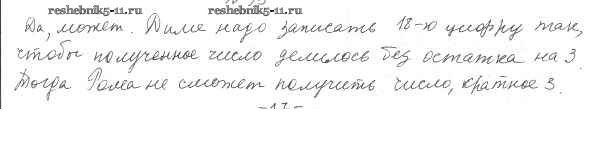 reshebnik5-11.ru reshebnik5-11.ru
Да, может. Диме надо записать 18-ю цифру так,
чтобы полученное число делилось без остатка на 3.
Тогда Рома не сможет получить число, кратное 3.